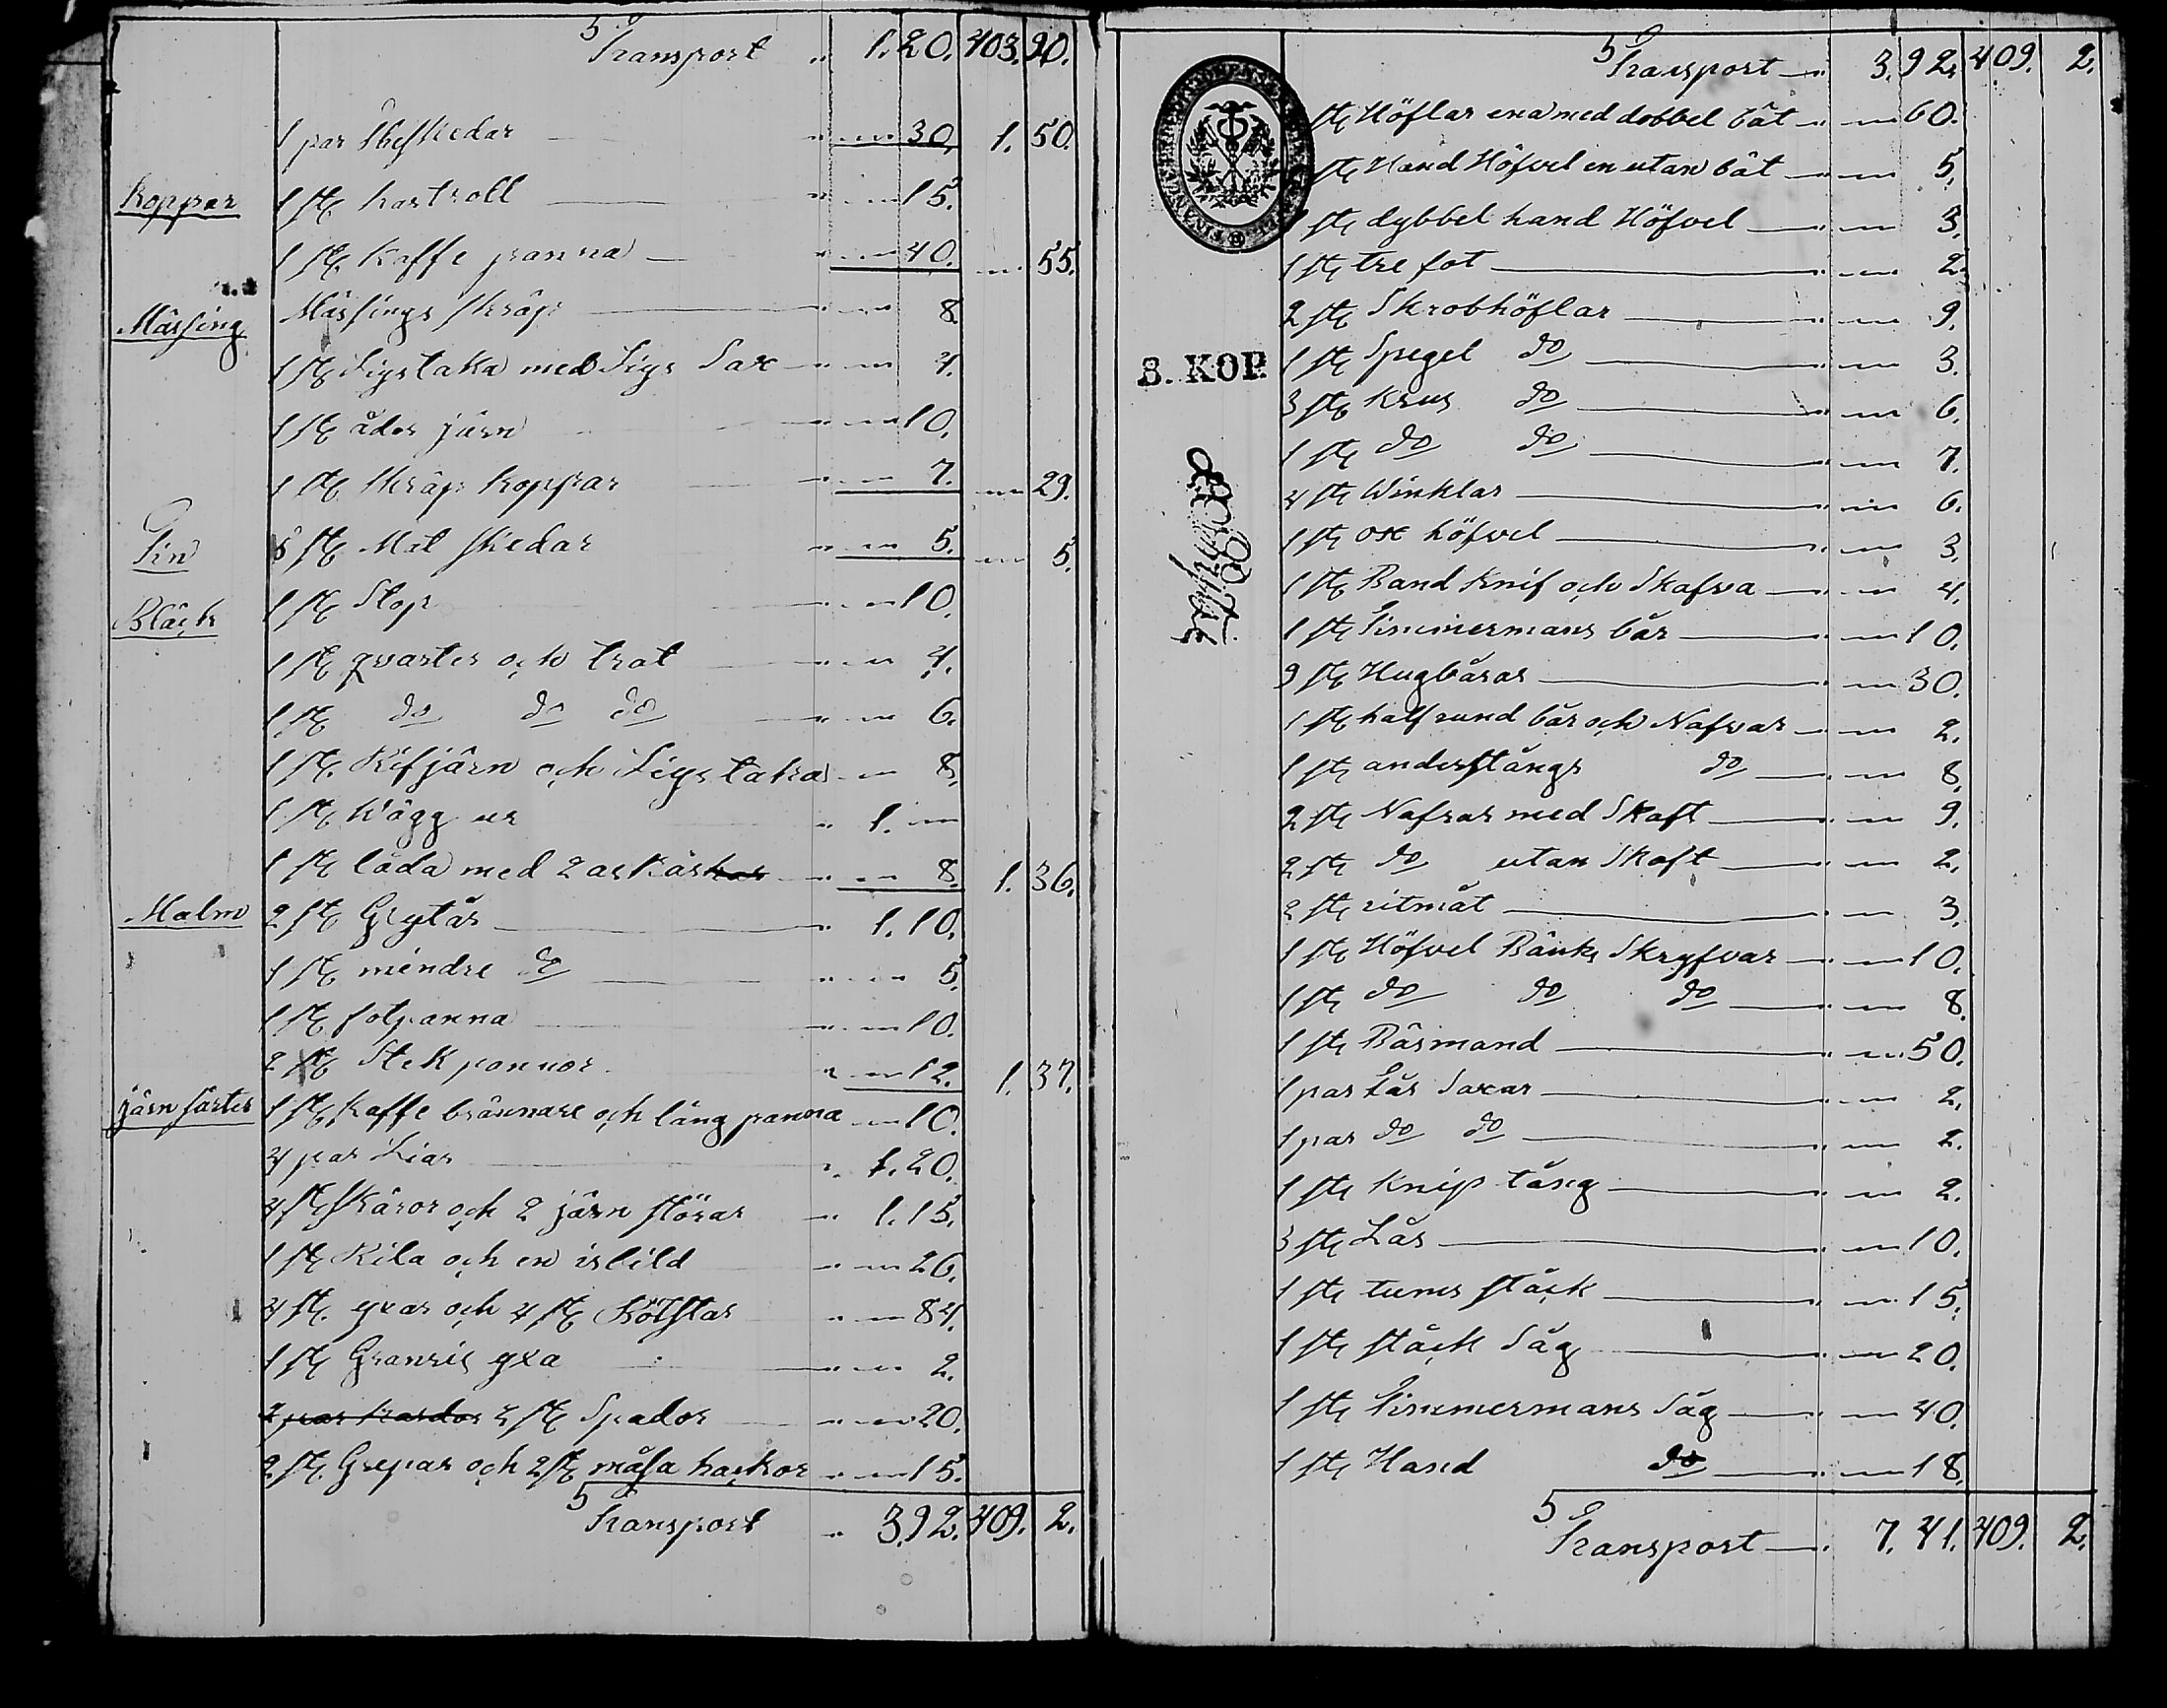 5 Transport " 1. 20. 403. 90.
1 par theskedar " " 30, 1. 50.
Koppar 1 st. kastroll " " 15.
1 st. Kaffe panna " " 40. " 55.
Mässing Mässings skräp " " 8.
1 st. Ljustaka med Ljus Sax " " 4.
1 st. åder järn " " 10.
1 st. skräp koppar " " 7. " 29.
Tin 8 st. Mat skedar " " 5. " 5.
Bläck 1 st. Stop " " 10.
1 st. qvarter och trat " " 4.
1 st. do do do " " 6.
1 st. Rifjärn och Ljustaka " 8.
1 st. Vägg ur " 1. "
1 st. låda med 2 askar " " 8. 1. 36.
Malm 2 st. Grytår " 1. 10.
1 st. mindre do " " 5.
1 st. fotpanna " " 10.
2 st. Stekpannor " " 12. 1. 37.
järn sarter 1 st. Kaffe brännare och lång panna " 10.
4 par Liar " 1. 20.
4 st. skäror och 2 järn störar " 1. 15.
1 st. Kila och en isbild " " 26.
4 st. yxar och 4 st. " " 84.
1 st. Granris yxa " " 2.
2 par kardor 4 st. Spador " " 20.
2 st. Grepar och 2 st. måsa hackor " " 15.
5 Transport " 3. 92. 409. 2.
5 Transport " 3. 92. 409. 2.
st. Höflar ena med dobbel båt " " 60.
st. Hand Höfvel en utan båt " " 5.
1 st. dybbel hand Höfvel " " 3.
1 st. tre fot " " 2.
2 st. Skrobhöflar " " 9.
8. KOP.
1 st. Spegel do " " 3.
3 st. Krus do " " 6.
1 st. do do " " 7.
4 st. Winklar " " 6.
1 st. ox höfvel " " 3.
1 st. Band Knif och Skafva " " 4.
1 st. Timmermans bår " " 10.
9 st. Hugbårar " " 30.
1 st. half rund bår och Nafvar " " 2.
1 st. anderstångs do " " 8.
2 st. Nafrar med Skaft " " 9.
2 st. do utan Skaft " " 2.
2 st. ritmåt " " 3.
1 st. Höfvel Bänks Skryfvar " " 10.
1 st. do do do " " 8.
1 st. Bärmand " " 50.
1 par Får Saxar " " 2.
1 par do do " " 2.
1 st. Knip tång " " 2.
3 st. Lås " " 10.
1 st. tums ståck " " 15.
1 st. ståck Såg " " 20.
1 st. Timmermans Såg " " 40.
1 st. Hand do " " 18.
5 Transport " 7. 41. 409. 2.